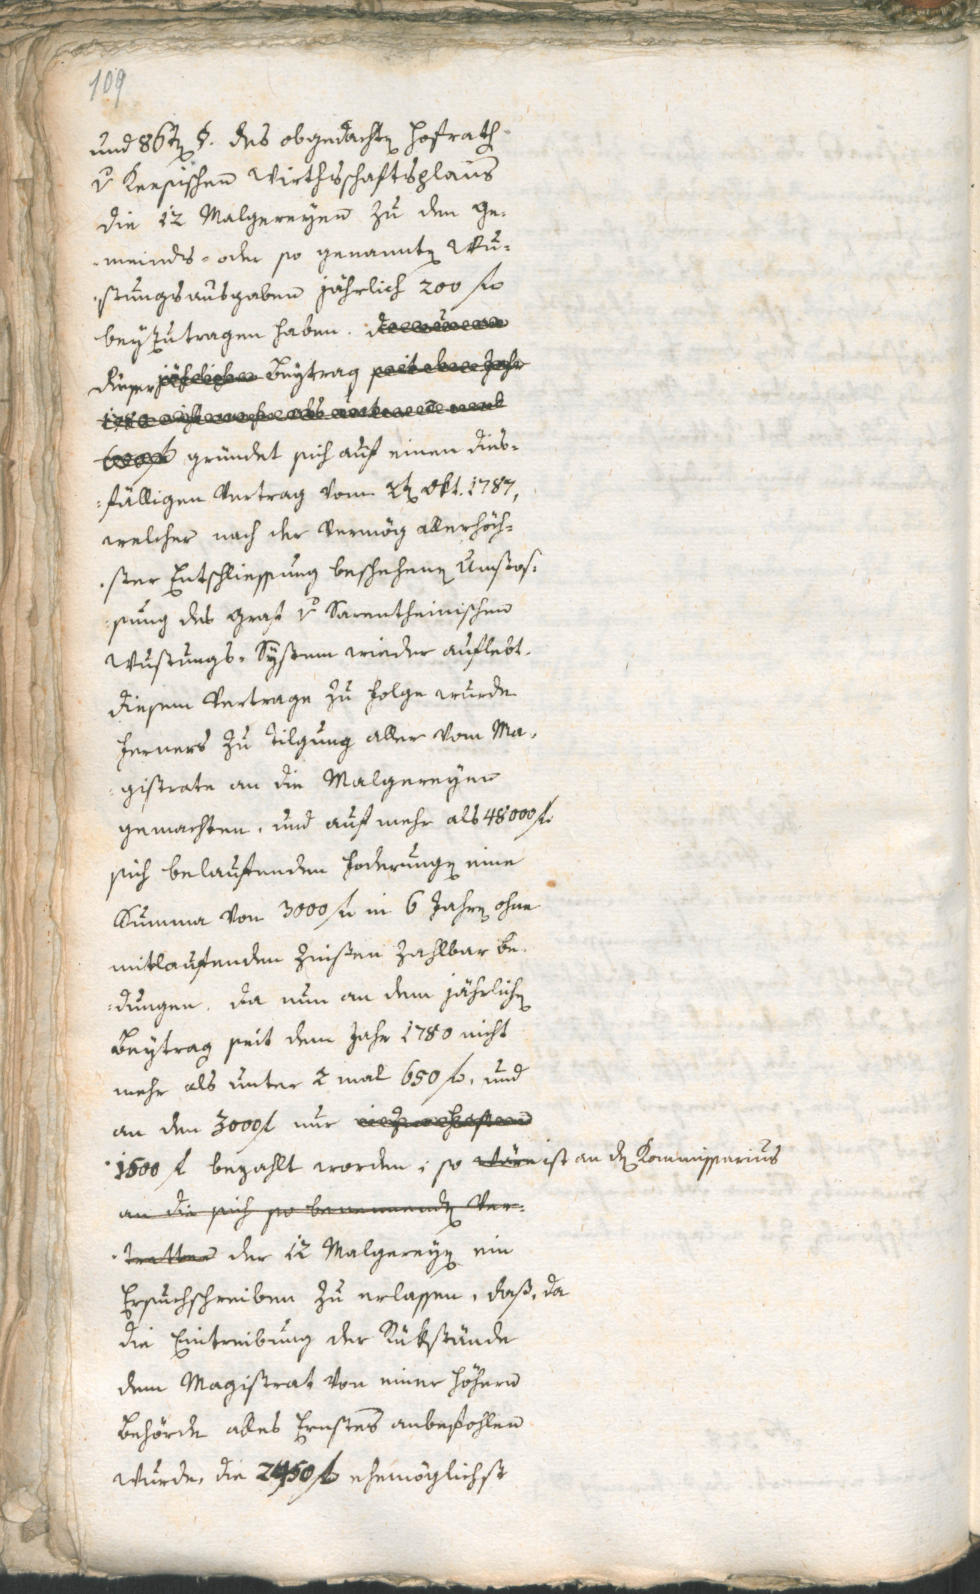 109
und 86t. §. des obgedachten Hofrath
v Keesischen Wirthschaftsplans
die 12 Malgereyen zu den Ge-
meinds- oder so genannten Wu-
stungsausgaben jährlich 200 f
beyzutragen haben.
Dieser jährlicher Beytrag seit dem Jahr
1780
600 f gründet sich auf einen dies-
fälligen Vertrag vom 2t Okt. 1787,
welcher nach der Vermög allerhöch-
ster Entschliessung beschehenen Umstos-
sung des Graf v Sarentheinischen
Wustungs-System wieder auflebt.
Diesem Vertrage zu Folge wurde
ferners zu Tilgung aller vom Ma-
gistrate an die Malgereyen
gemachten, und auf mehr als 48000 f
sich belaufenden Foderungen eine
Summa von 3000 f in 6 Jahren ohne
mitlaufenden Zinsen zahlbar be-
dungen. Da nun an dem jährlichen
Beytrag seit dem Jahr 1780 nicht
mehr als unter 2 mal 650 f, und
an den 3000 f nur
1500 f bezahlt worden; so wäre ist an den Kommissarius
an die sich so benennenden Ver-
tretter der 12 Malgereyen ein
Ersuchschreiben zu erlassen, daß, da
die Eintreibung der Rükstände
dem Magistrat von einer höhern
Behörde alles Ernstes anbefohlen
wurde, die 2450 f ehemöglichst